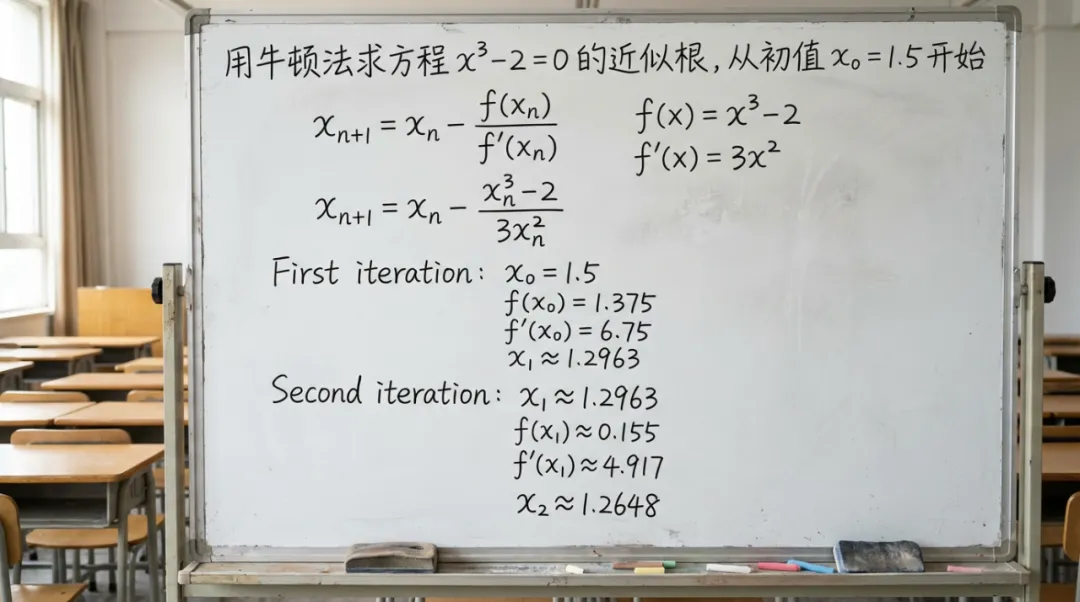 用牛顿法求方程 x³-2=0 的近似根,从初值 x₀=1.5 开始
xₙ₊₁ = xₙ - f(xₙ)/f'(xₙ)
f(x) = x³-2
f'(x) = 3x²
xₙ₊₁ = xₙ - (xₙ³-2)/(3xₙ²)
First iteration: x₀ = 1.5
f(x₀) = 1.375
f'(x₀) = 6.75
x₁ ≈ 1.2963
Second iteration: x₁ ≈ 1.2963
f(x₁) ≈ 0.155
f'(x₁) ≈ 4.917
x₂ ≈ 1.2648